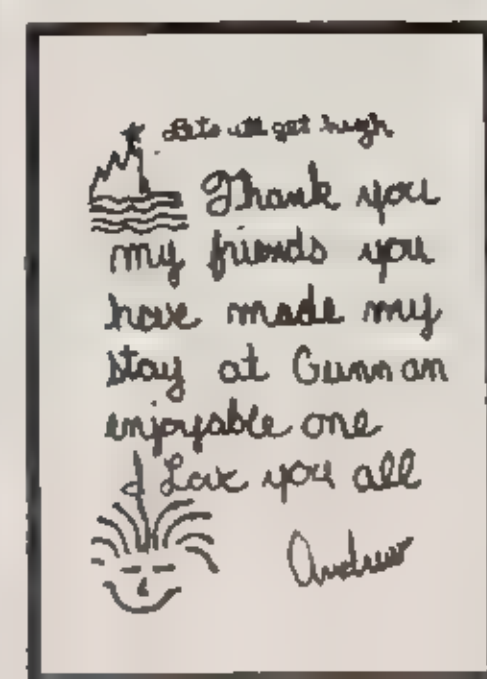 Lets all get high
Thank you
my friends you
have made my
stay at Gunn an
enjoyable one
I Love you all
Andrew